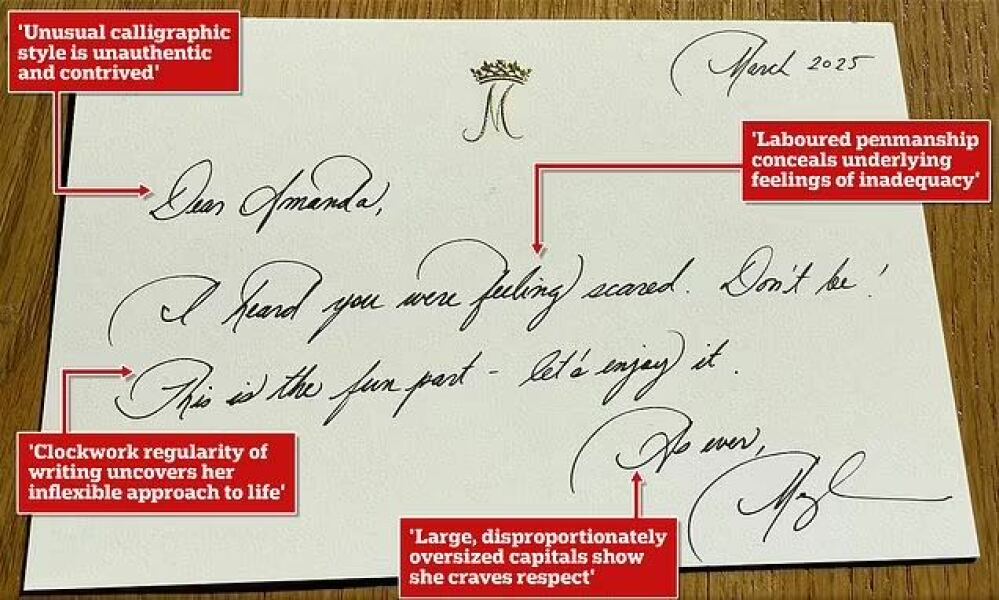 'Unusual calligraphic
style is unauthentic
and contrived'
M
March 2025
'Laboured penmanship
conceals underlying
feelings of inadequacy'
Dear Amanda,
I heard you were feeling scared. Don't be!
This is the fun part - let's enjoy it.
'Clockwork regularity of
writing uncovers her
inflexible approach to life'
As ever,
'Large, disproportionately
oversized capitals show
she craves respect'